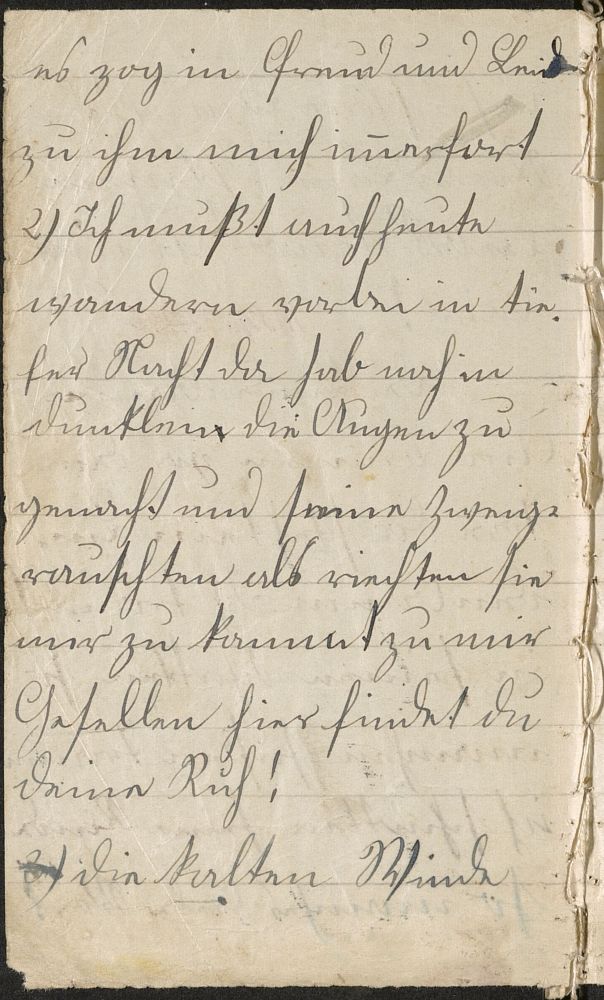 es zog in Freud und Leid
zu ihm mich im̅erfort
2) Ich mußt auch heute
wandern vorbei in tie-
fer Nacht da hab noch im
dunklem die Augen zu
gemacht und seine Zweige
rauschten als riechten sie
mir zu kommt zu mir
Gesellen hier findet du
deine Ruh!
3) die kalten Winde